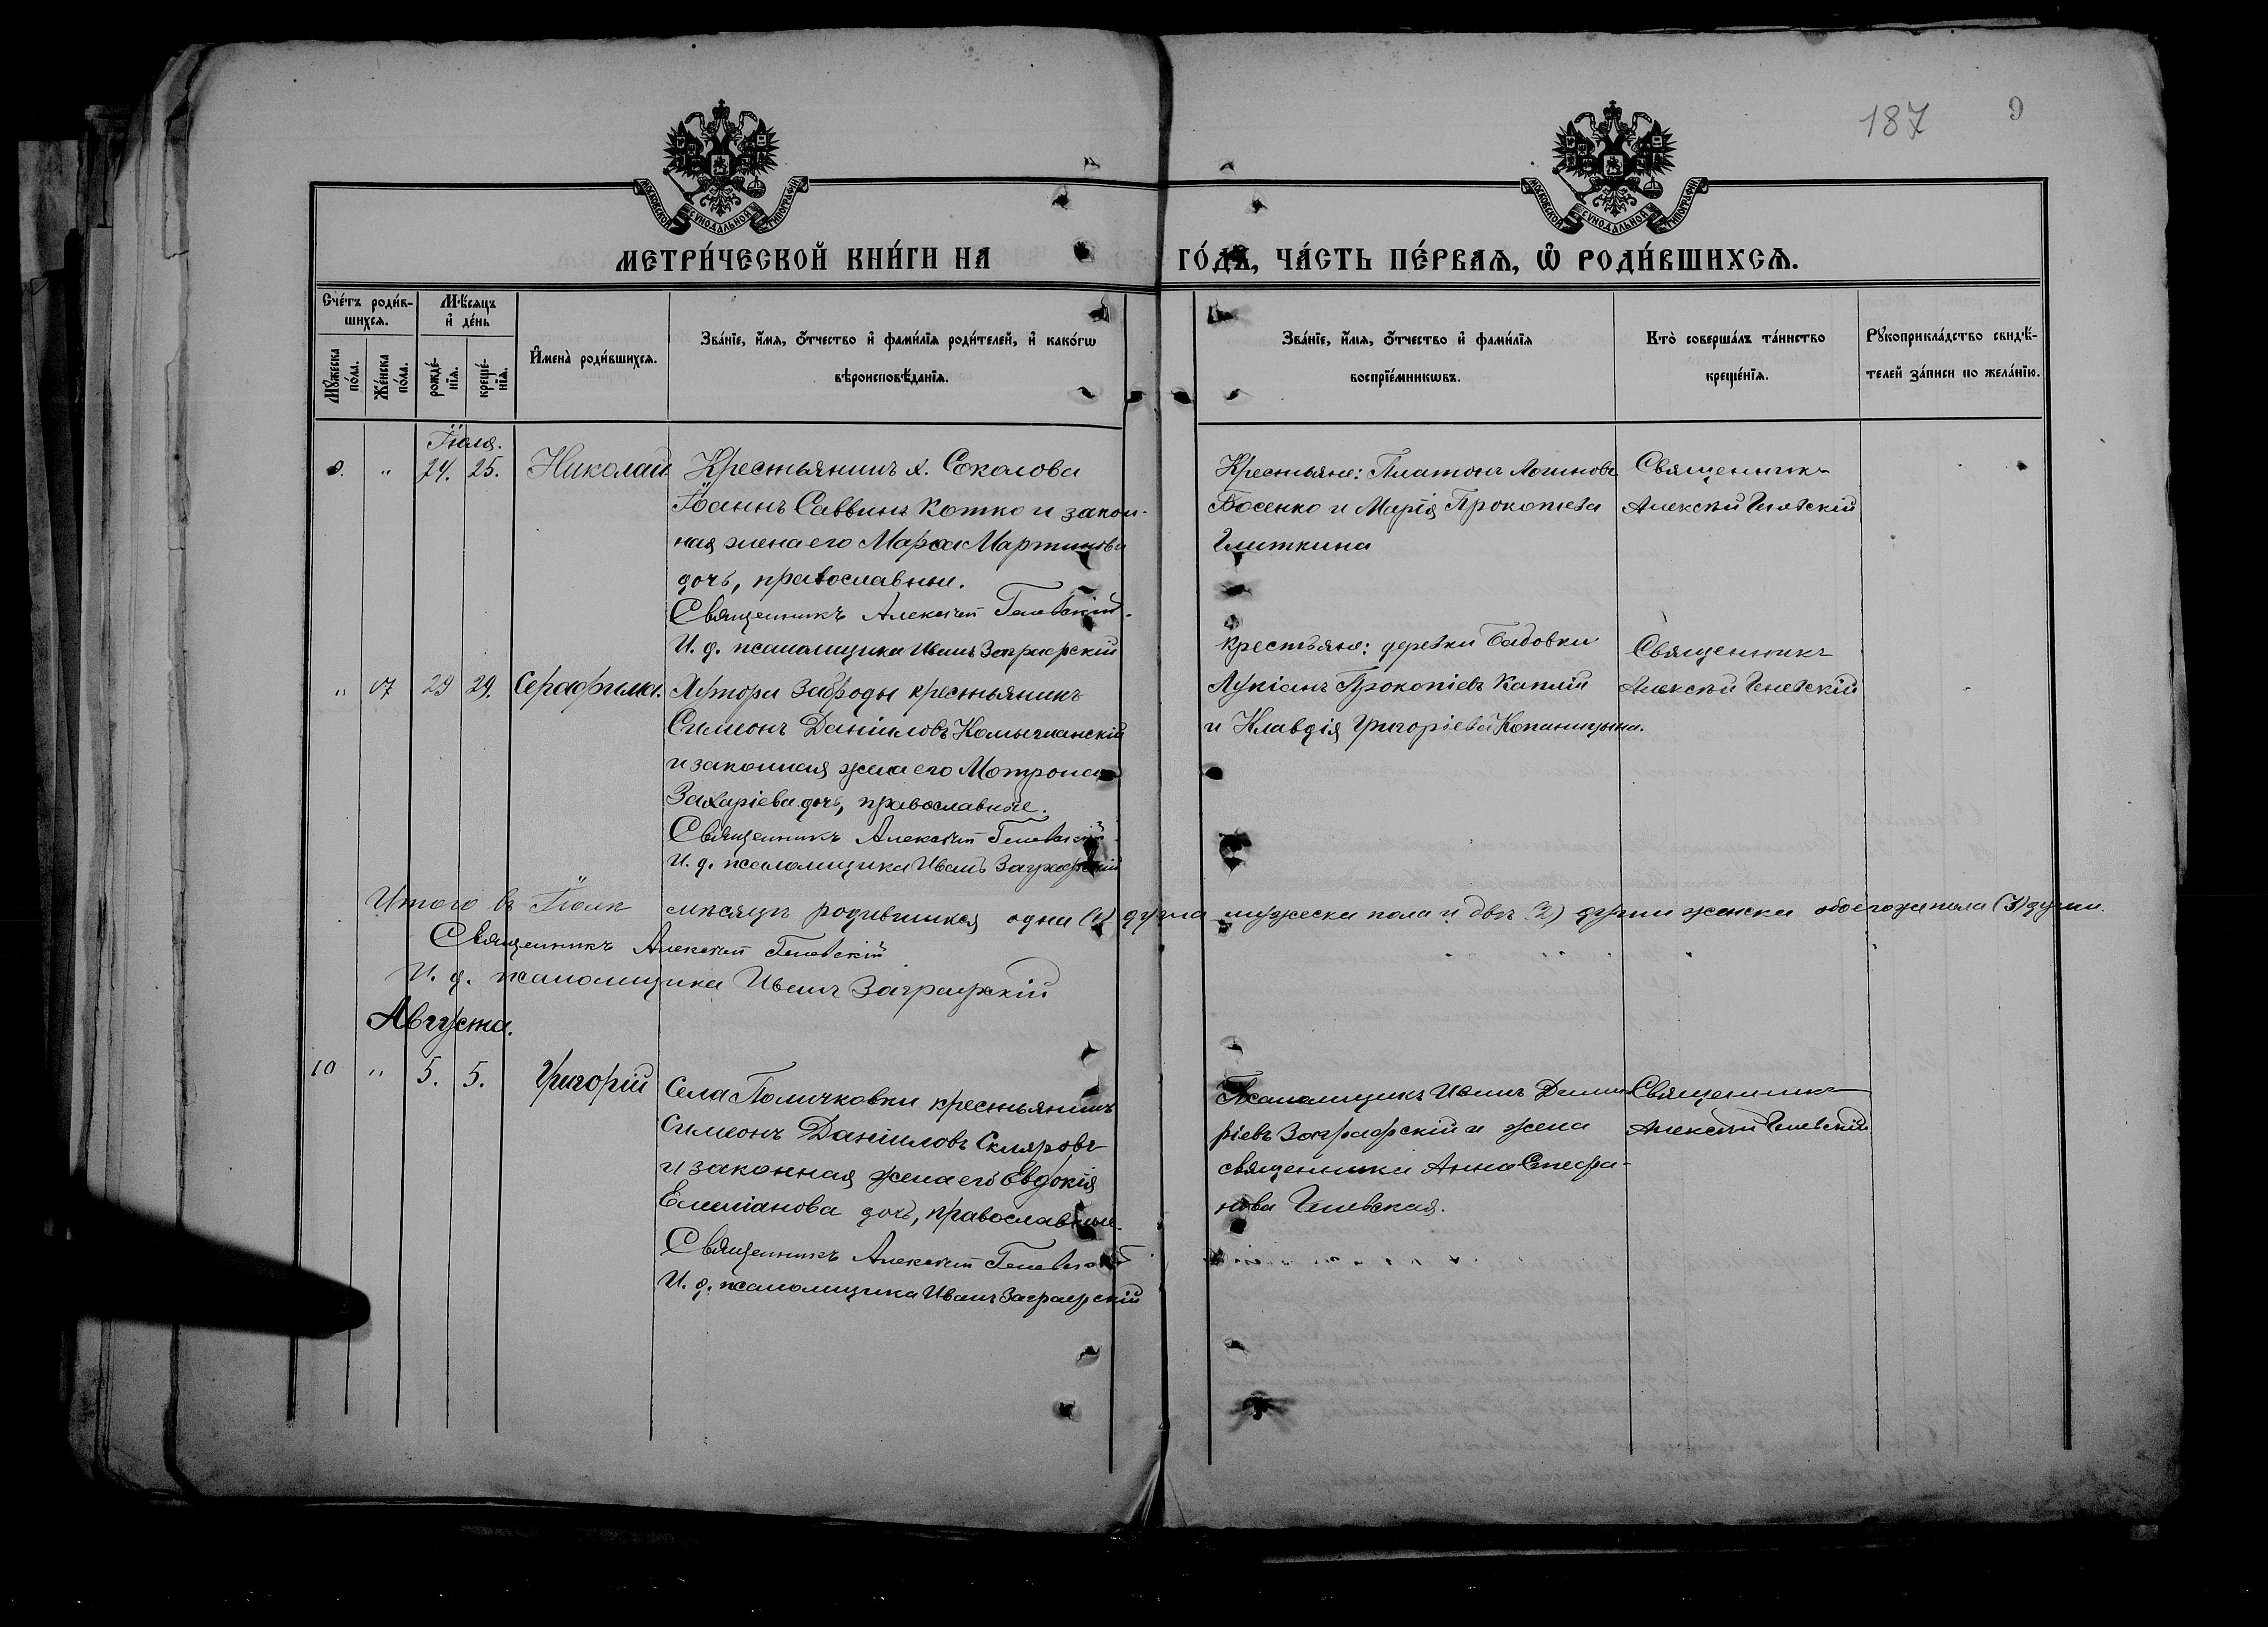 187 9
МОСКОВСКОЙ СѴНОДАЛЬНОЙ ТИПОГРАФІИ
МОСКОВСКОЙ СѴНОДАЛЬНОЙ ТИПОГРАФІИ
МЕТРИ́ЧЕСКОЙ КНИ́ГИ НА ГО́ДЪ, ЧА́СТЬ ПЕ́РВАЯ, Ѡ҆ РОДИ́ВШИХСЯ.
Сче́тъ роди́в-
шихся.
Мꙋ́жеска по́ла.
Же́нска по́ла.
Мѣ́сяцъ
и҆ де́нь
рожде́-
нїя.
креще́-
нїя.
И҆мена̀ роди́вшихся.
Зва́нїе, и҆́мя, ѻ҆́тчество и҆ фами́лїя роди́телей, и҆ како́гѡ
вѣроисповѣ́данїя.
Зва́нїе, и҆́мя, ѻ҆́тчество и҆ фами́лїя
воспрїе́мникѡвъ.
Кто̀ соверша́лъ та́инство
креще́нїя.
Рꙋкоприкла́дство свидѣ́-
телей за́писи по жела́нїю.
Іюля.
9. " 24. 25. Николай
Крестьянинъ х. Соколова
Іоаннъ Саввинъ Котко и закон-
ная жена его Марѳа Мартинова
дочь, православные.
Священникъ Алексѣй
И. д. псаломщика Иванъ Заграфскій
Крестьяне: Платонъ Логиновъ
Босенко и Марія Прокопіева
Глиткина
Священникъ
Алексѣй
" 7 29 29. Серафима.
Хутора Заброды крестьянинъ
Симеонъ Даніиловъ Комычанскій
и законная жена его Мотрона
Захаріева дочь, православные.
Священникъ Алексѣй
И. д. псаломщика Иванъ Заграфскій
Крестьяне: деревни Бабовки
Лукіанъ Прокопіевъ Каплій
и Клавдія Григоріева Копаницына.
Священникъ
Алексѣй
Итого въ Іюлѣ мѣсяцѣ родившихся одна (1) душа мужеска пола и двѣ (2) души женска обоего же пола (3) души.
Священникъ Алексѣй
И. д. псаломщика Иванъ Заграфскій
Августа.
10 " 5. 5. Григорій
Села Поличковки крестьянинъ
Симеонъ Даніиловъ Скляровъ
и законная жена его Евдокія
Емиліанова дочь, православные.
Священникъ Алексѣй
И. д. псаломщика Иванъ Заграфскій
Псаломщикъ Иванъ Димит
ріевъ Заграфскій и жена
священника Анна Стефа-
нова
Священникъ
Алексѣй